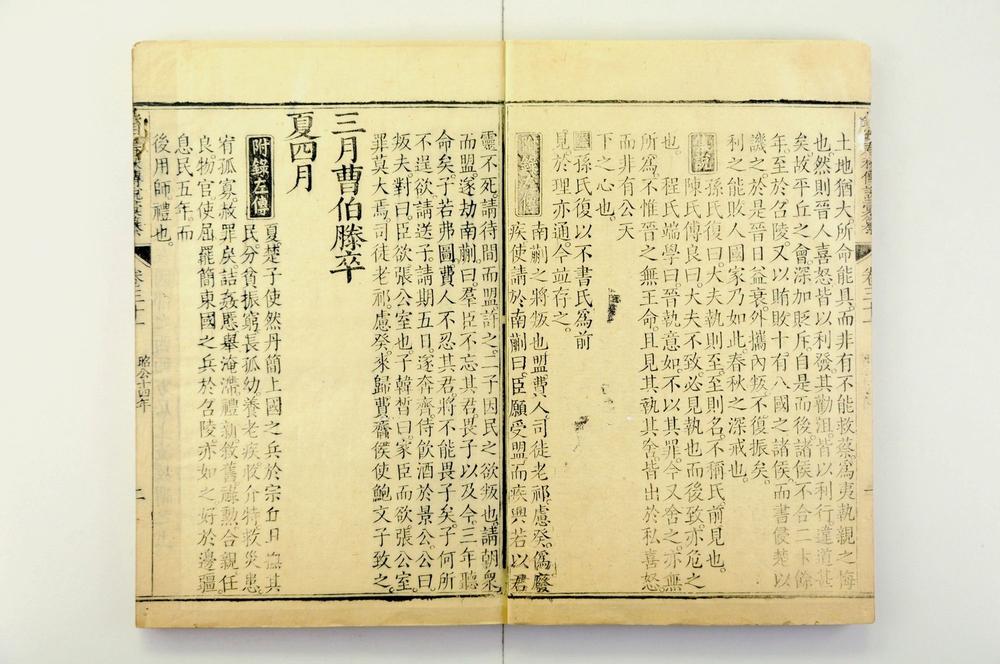 土地猶大所命能具而非有不能救蔡爲夷執親之悔
也然則晉人喜怒皆以利發其勸沮皆以利行違道甚
矣故平丘之會深加貶斥自是而後諸侯不合二十餘
年至於召陵又以賄敗十有八國之諸侯而書侵楚以
譏之於是晉日益衰外攜內叛不復振矣
利之能敗人國家乃如此春秋之深戒也
孫氏復曰大夫執則至至則名不稱氏前見也
陳氏傅良曰大夫不致必見執也而後致亦危之
也 程氏端學曰晉執意如不以其罪今又舍之亦無
所爲不惟晉之無王命且見其執其舍皆出於私喜怒
而非有公天
下之心也
孫氏復以不書氏爲前
見於理亦通今並存之
南蒯之將叛也盟費人司徒老祁慮癸爲廢
疾使請於南蒯曰臣願受盟而疾興若以君
靈不死請待間而盟許之二子因民之欲叛也請朝衆
而盟遂劫南蒯曰羣臣不忘其君畏子以及今三年聽
命矣子若弗圖費人不忍其君將不能畏子矣子何所
不逞欲請送子請期五日遂奔齊侍飲酒於景公公曰
叛夫對曰臣欲張公室也子韓晳曰家臣而欲張公室
罪莫大焉司徒老祁慮癸來歸費齊侯使鮑文子致之
三月曹伯滕卒
夏四月
附錄左傳
夏楚子使然丹簡上國之兵於宗丘且撫其
民分貧振窮長孤幼養老疾收介特救災患
宥孤寡赦罪戾詰姦慝舉淹滯禮新敘舊祿勲合親任
良物官使屈罷簡東國之兵於召陵亦如之好於邊疆
息民五年而
後用師禮也
卷三十一
昭公十四年
二